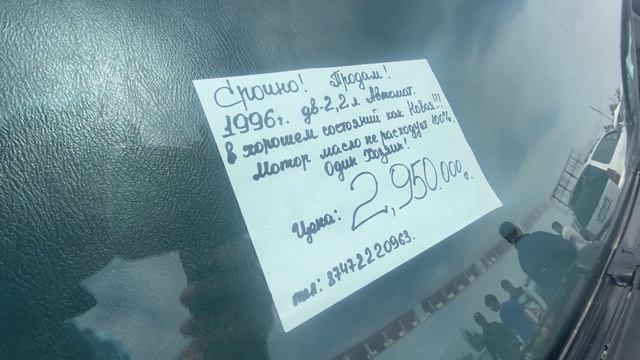 Срочно! Продам!
1996г. дв-2,2л. Автомат.
в хорошем состояний как Новая!!!
Мотор масло не расходует 100%.
Один Хозяин!
Цена: 2,950.000т.
тел: 87472220963.